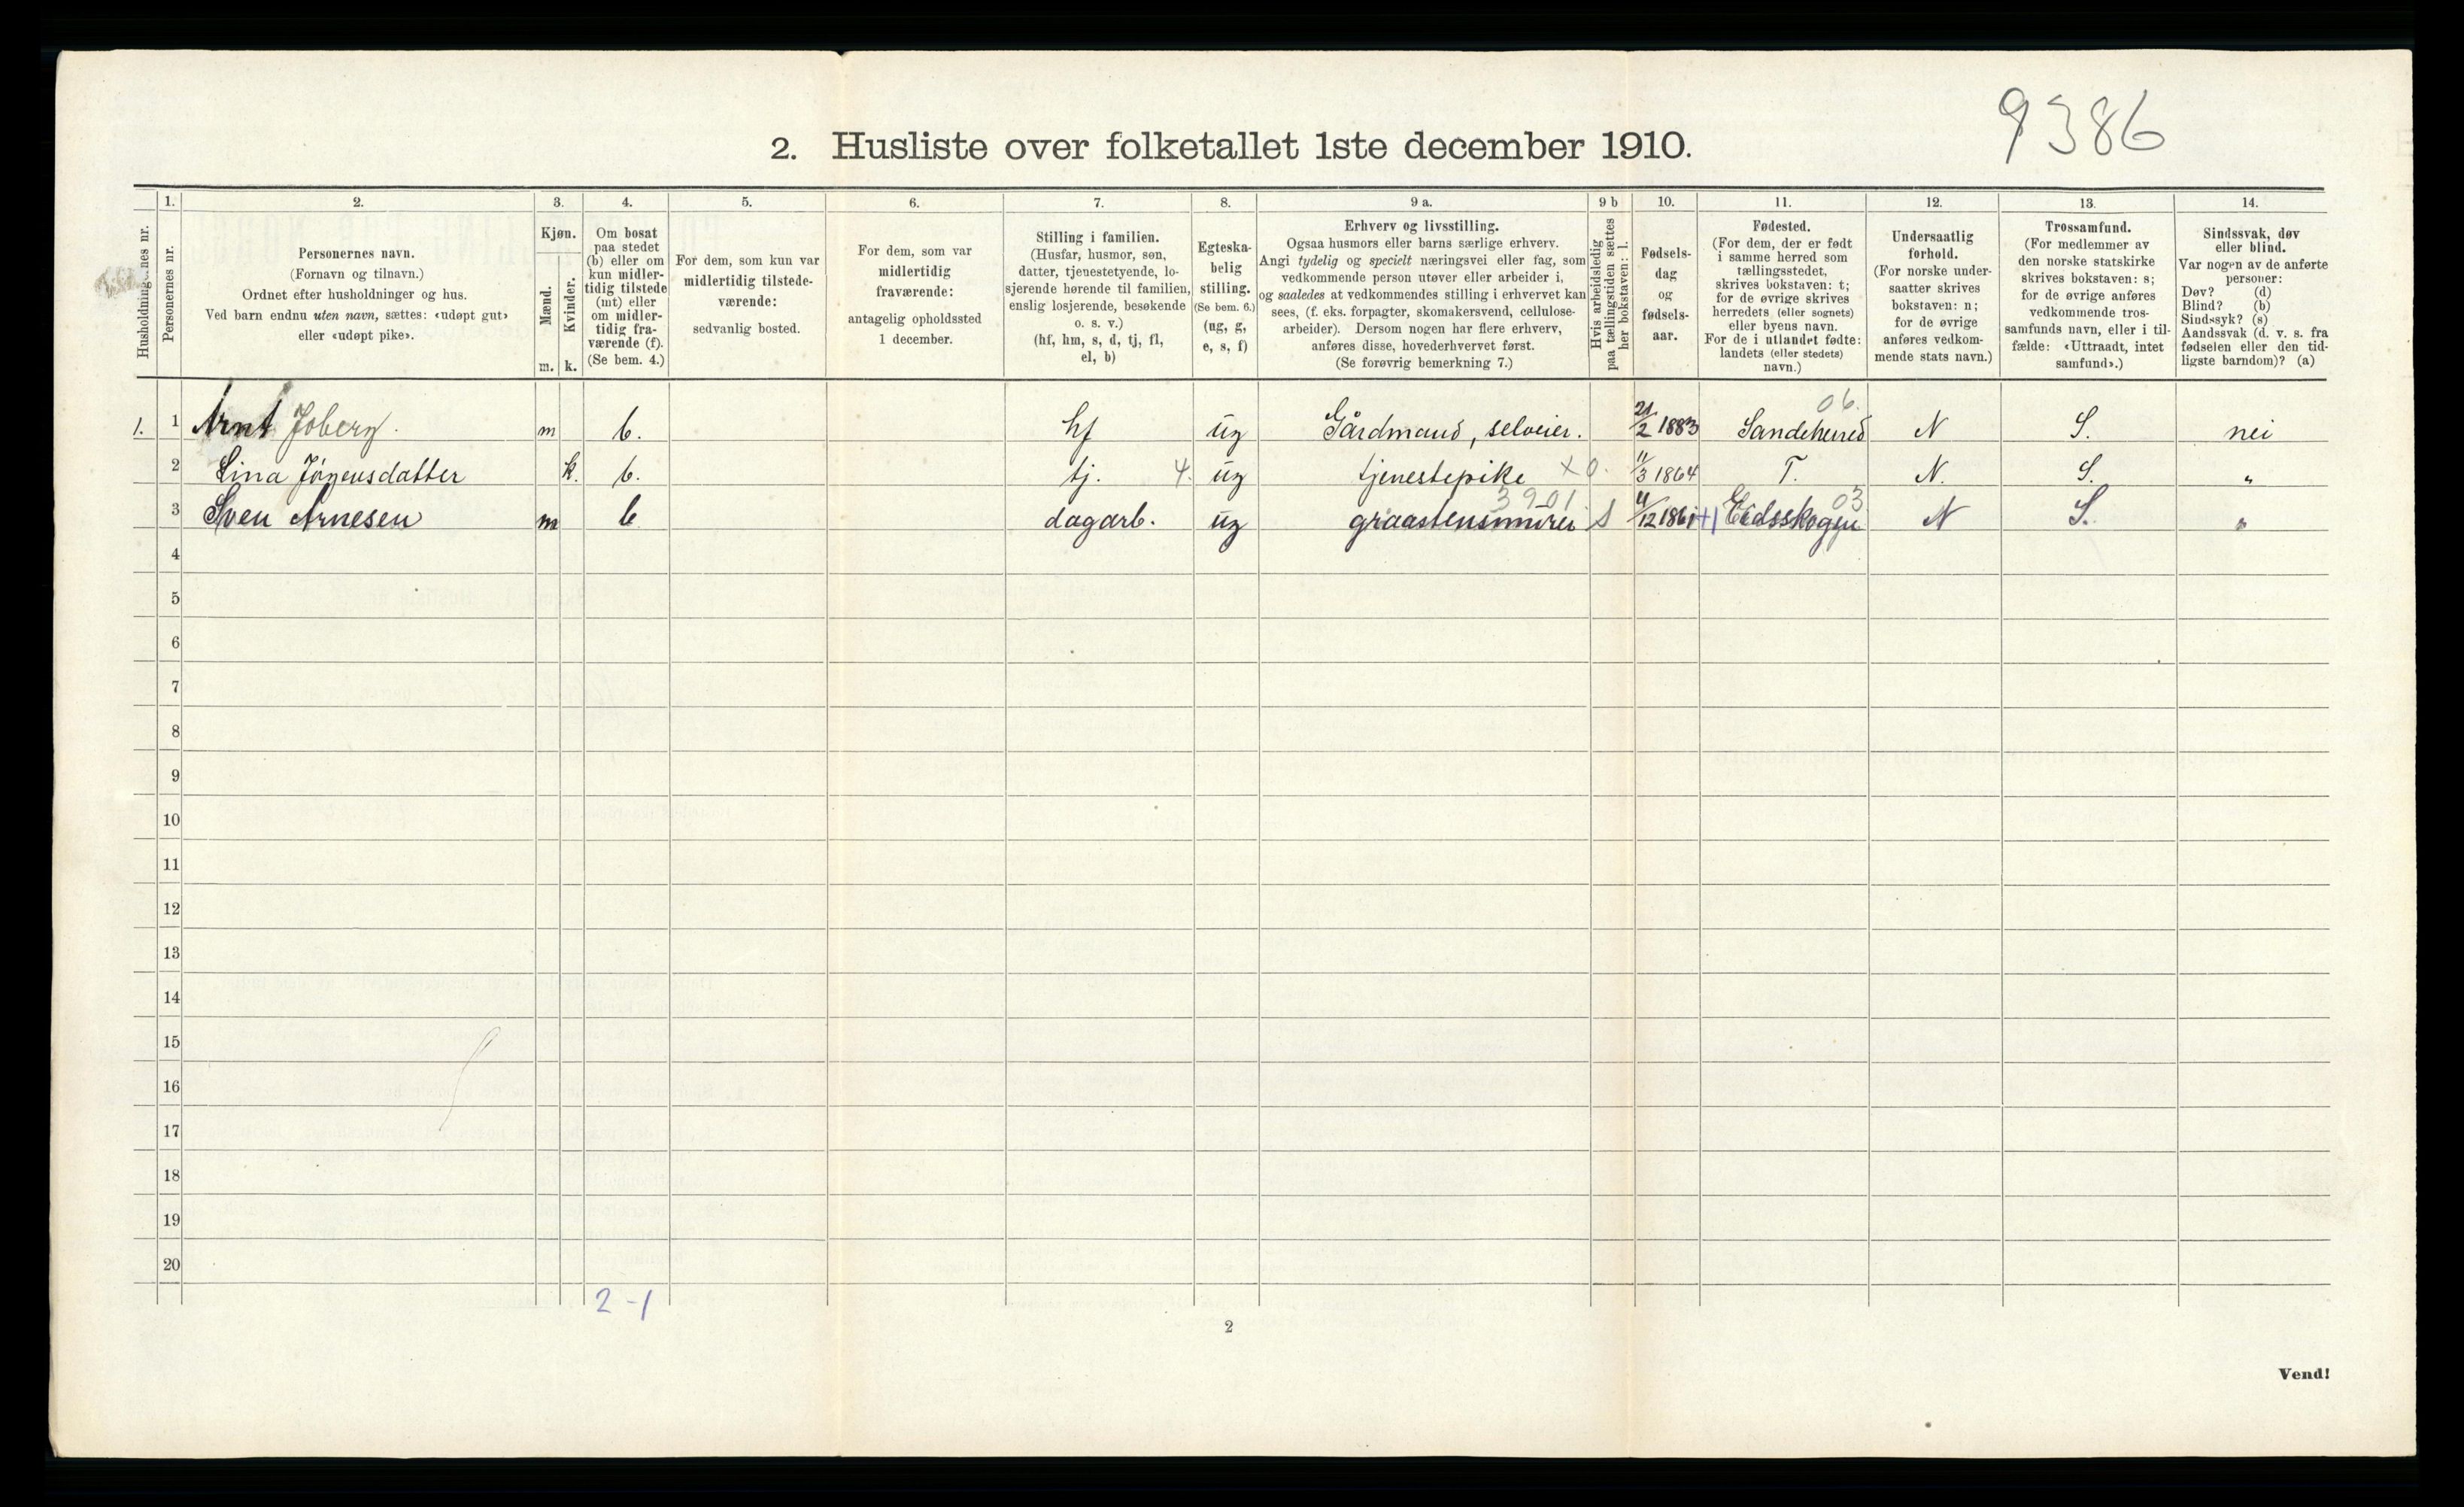 9386
2. Husliste over folketallet 1ste december 1910.
1. 2. 3. 4. 5. 6. 7. 8. 9 a. 9 b 10. 11. 12. 13. 14.
Husholdningenes nr.
Personernes nr.
Personernes navn.
(Fornavn og tilnavn.)
Ordnet efter husholdninger og hus.
Ved barn endnu uten navn, sættes: «udøpt gut»
eller «udøpt pike».
Kjøn.
Mænd.
Kvinder.
m. k.
Om bosat
paa stedet
(b) eller om
kun midler-
tidig tilstede
(mt) eller
om midler-
tidig fra-
værende (f).
(Se bem. 4.)
For dem, som kun var
midlertidig tilstede-
værende:
sedvanlig bosted.
For dem, som var
midlertidig
fraværende:
antagelig opholdssted
1 december.
Stilling i familien.
(Husfar, husmor, søn,
datter, tjenestetyende, lo-
sjerende hørende til familien,
enslig losjerende, besøkende
o. s. v.)
(hf, hm, s, d, tj, fl,
el, b)
Egteska-
belig
stilling.
(Se bem. 6.)
(ug, g,
e, s, f)
Erhverv og livsstilling.
Ogsaa husmors eller barns særlige erhverv.
Angi tydelig og specielt næringsvei eller fag, som
vedkommende person utøver eller arbeider i,
og saaledes at vedkommendes stilling i erhvervet kan
sees, (f. eks. forpagter, skomakersvend, cellulose-
arbeider). Dersom nogen har flere erhverv,
anføres disse, hovederhvervet først.
(Se forøvrig bemerkning 7.)
Hvis arbeidsledig
paa tællingstiden sættes
her bokstaven: l.
Fødsels-
dag
og
fødsels-
aar.
Fødested.
(For dem, der er født
i samme herred som
tællingsstedet,
skrives bokstaven: t;
for de øvrige skrives
herredets (eller sognets)
eller byens navn.
For de i utlandet fødte:
landets (eller stedets)
navn.)
Undersaatlig
forhold.
(For norske under-
saatter skrives
bokstaven: n;
for de øvrige
anføres vedkom-
mende stats navn.)
Trossamfund.
(For medlemmer av
den norske statskirke
skrives bokstaven: s;
for de øvrige anføres
vedkommende tros-
samfunds navn, eller i til-
fælde: «Uttraadt, intet
samfund».)
Sindssvak, døv
eller blind.
Var nogen av de anførte
personer:
Døv? (d)
Blind? (b)
Sindssyk? (s)
Aandssvak (d. v. s. fra
fødselen eller den tid-
ligste barndom)? (a)
06.
1. 1 Arnt Joberg. m b. hf ug Gårdmand, selveier. 21/2 1883 Sandeherred N S. nei
2 Lina Jörgensdatter k. b. tj. 4. ug tjenestepike x0. 11/3 1864 T. N. S. "
3901 03
3 Sven Arnesen m b dagarb. ug graastensmurer 1861 +1 Eidsskogen N S. "
4
5
6
7
8
9
10
11
12
13
14
15
16
17
18
19
20
2-1
2
Vend!